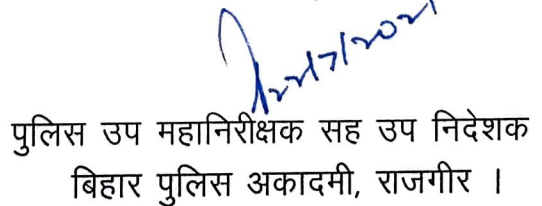 पुलिस उप महानिरीक्षक सह उप निदेशक
बिहार पुलिस अकादमी, राजगीर ।